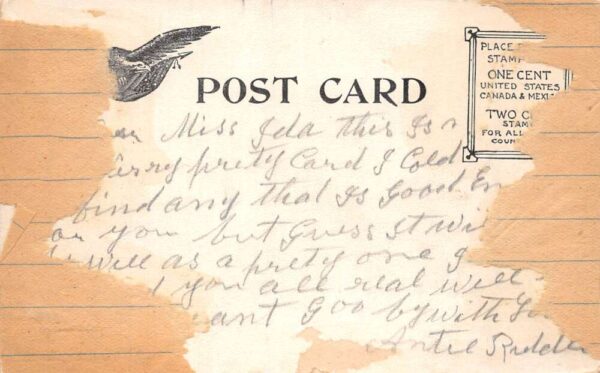 POST CARD
PLACE
STAMP
ONE CENT
UNITED STATES
CANADA & MEXI
TWO C
STAM
FOR ALL
COUN
Miss Ida this Is
pretty Card I Cold
find any that Is Good En
you but Guess It wil
will as a pretty one
you all real will
ant Goo by with Lo